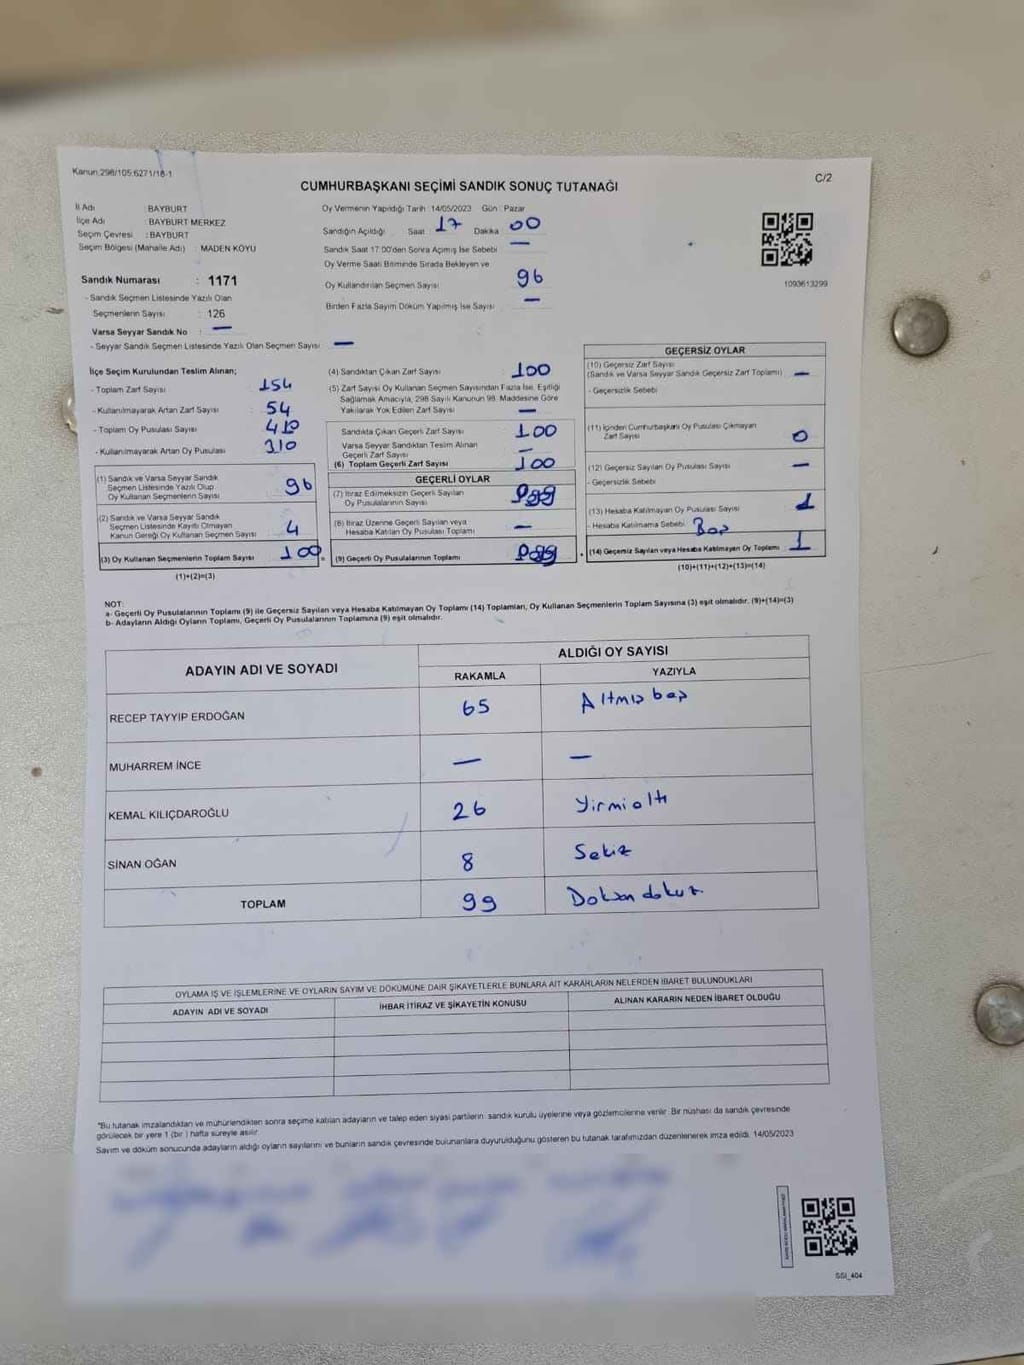 Kanun:298/105,6271/18-1
C/2
CUMHURBAŞKANI SEÇİMİ SANDIK SONUÇ TUTANAĞI
İl Adı : BAYBURT
İlçe Adı : BAYBURT MERKEZ
Seçim Çevresi : BAYBURT
Seçim Bölgesi (Mahalle Adı) : MADEN KÖYÜ
Oy Vermenin Yapıldığı Tarih :14/05/2023 Gün : Pazar
Sandığın Açıldığı Saat 17 Dakika 00
Sandık Saat 17.00'den Sonra Açılmış İse Sebebi —
Oy Verme Saati Bitiminde Sırada Bekleyen ve
Oy Kullandırılan Seçmen Sayısı 96
Birden Fazla Sayım Döküm Yapılmış İse Sayısı —
1093613299
Sandık Numarası : 1171
- Sandık Seçmen Listesinde Yazılı Olan
Seçmenlerin Sayısı : 126
Varsa Seyyar Sandık No : —
- Seyyar Sandık Seçmen Listesinde Yazılı Olan Seçmen Sayısı —
İlçe Seçim Kurulundan Teslim Alınan;
- Toplam Zarf Sayısı 154
- Kullanılmayarak Artan Zarf Sayısı 54
- Toplam Oy Pusulası Sayısı 410
- Kullanılmayarak Artan Oy Pusulası 310
(1) Sandık ve Varsa Seyyar Sandık
Seçmen Listesinde Yazılı Olup
Oy Kullanan Seçmenlerin Sayısı 96
(2) Sandık ve Varsa Seyyar Sandık
Seçmen Listesinde Kayıtlı Olmayan
Kanun Gereği Oy Kullanan Seçmen Sayısı 4
(3) Oy Kullanan Seçmenlerin Toplam Sayısı 100
(1)+(2)=(3)
(4) Sandıktan Çıkan Zarf Sayısı 100
(5) Zarf Sayısı Oy Kullanan Seçmen Sayısından Fazla İse, Eşitliği
Sağlamak Amacıyla, 298 Sayılı Kanunun 98. Maddesine Göre
Yakılarak Yok Edilen Zarf Sayısı —
Sandıkta Çıkan Geçerli Zarf Sayısı 100
Varsa Seyyar Sandıktan Teslim Alınan
Geçerli Zarf Sayısı —
(6) Toplam Geçerli Zarf Sayısı 100
GEÇERLİ OYLAR
(7) İtiraz Edilmeksizin Geçerli Sayılan
Oy Pusulalarının Sayısı
(8) İtiraz Üzerine Geçerli Sayılan veya
Hesaba Katılan Oy Pusulası Toplamı —
(9) Geçerli Oy Pusulalarının Toplamı
GEÇERSİZ OYLAR
(10) Geçersiz Zarf Sayısı
(Sandık ve Varsa Seyyar Sandık Geçersiz Zarf Toplamı) —
- Geçersizlik Sebebi
(11) İçinden Cumhurbaşkanı Oy Pusulası Çıkmayan
Zarf Sayısı 0
(12) Geçersiz Sayılan Oy Pusulası Sayısı —
- Geçersizlik Sebebi
(13) Hesaba Katılmayan Oy Pusulası Sayısı 1
- Hesaba Katılmama Sebebi Boş
(14) Geçersiz Sayılan veya Hesaba Katılmayan Oy Toplamı 1
(10)+(11)+(12)+(13)=(14)
NOT:
a- Geçerli Oy Pusulalarının Toplamı (9) ile Geçersiz Sayılan veya Hesaba Katılmayan Oy Toplamı (14) Toplamları, Oy Kullanan Seçmenlerin Toplam Sayısına (3) eşit olmalıdır. (9)+(14)=(3)
b- Adayların Aldığı Oyların Toplamı, Geçerli Oy Pusulalarının Toplamına (9) eşit olmalıdır.
ADAYIN ADI VE SOYADI
ALDIĞI OY SAYISI
RAKAMLA YAZIYLA
RECEP TAYYİP ERDOĞAN 65 Altmış beş
MUHARREM İNCE — —
KEMAL KILIÇDAROĞLU 26 Yirmi altı
SİNAN OĞAN 8 Sekiz
TOPLAM 99 Doksan dokuz
OYLAMA İŞ VE İŞLEMLERİNE VE OYLARIN SAYIM VE DÖKÜMÜNE DAİR ŞİKAYETLERLE BUNLARA AİT KARARLARIN NELERDEN İBARET BULUNDUKLARI
ADAYIN ADI VE SOYADI İHBAR İTİRAZ VE ŞİKAYETİN KONUSU ALINAN KARARIN NEDEN İBARET OLDUĞU
*Bu tutanak imzalandıktan ve mühürlendikten sonra seçime katılan adayların ve talep eden siyasi partilerin sandık kurulu üyelerine veya gözlemcilerine verilir. Bir nüshası da sandık çevresinde
görülecek bir yere 1 (bir ) hafta süreyle asılır.
Sayım ve döküm sonucunda adayların aldığı oyların sayılarını ve bunların sandık çevresinde bulunanlara duyurulduğunu gösteren bu tutanak tarafımızdan düzenlenerek imza edildi. 14/05/2023
SSI_404